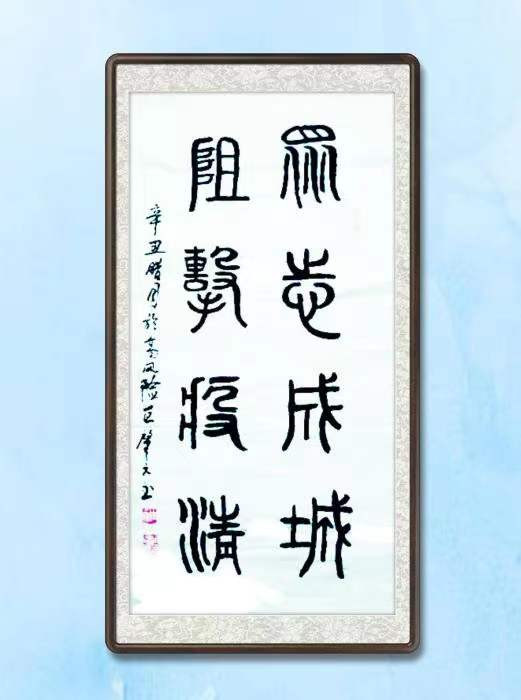 眾志成城
阻擊疫情
辛丑腊月於高风险区肇书